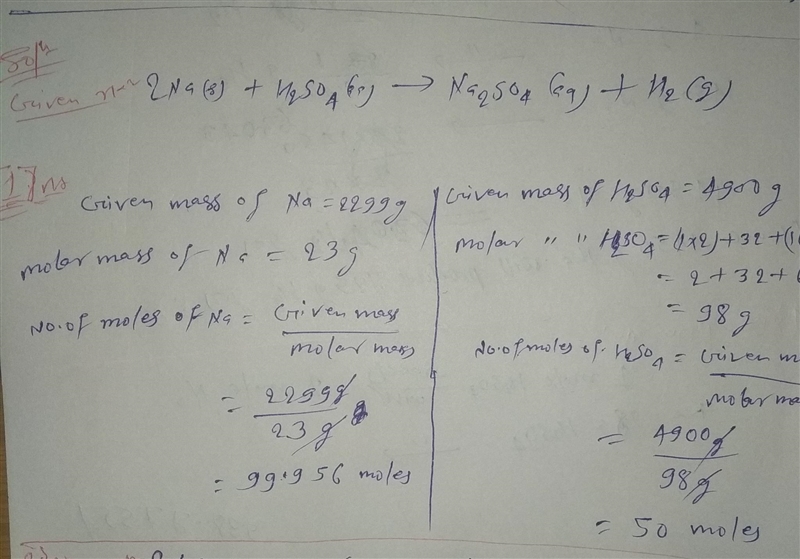 Soln
Given rxn 2Na(s) + H2SO4(aq) → Na2SO4(aq) + H2(g)
1) Ans
Given mass of Na = 2299g
molar mass of Na = 23g
No. of moles of Na = Given mass
molar mass
= 2299g
23g
= 99.956 moles
Given mass of H2SO4 = 4900g
molar " " H2SO4 = (1x2)+32+(16
= 2+32+6
= 98g
No. of moles of H2SO4 = Given m
molar ma
= 4900g
98g
= 50 moles